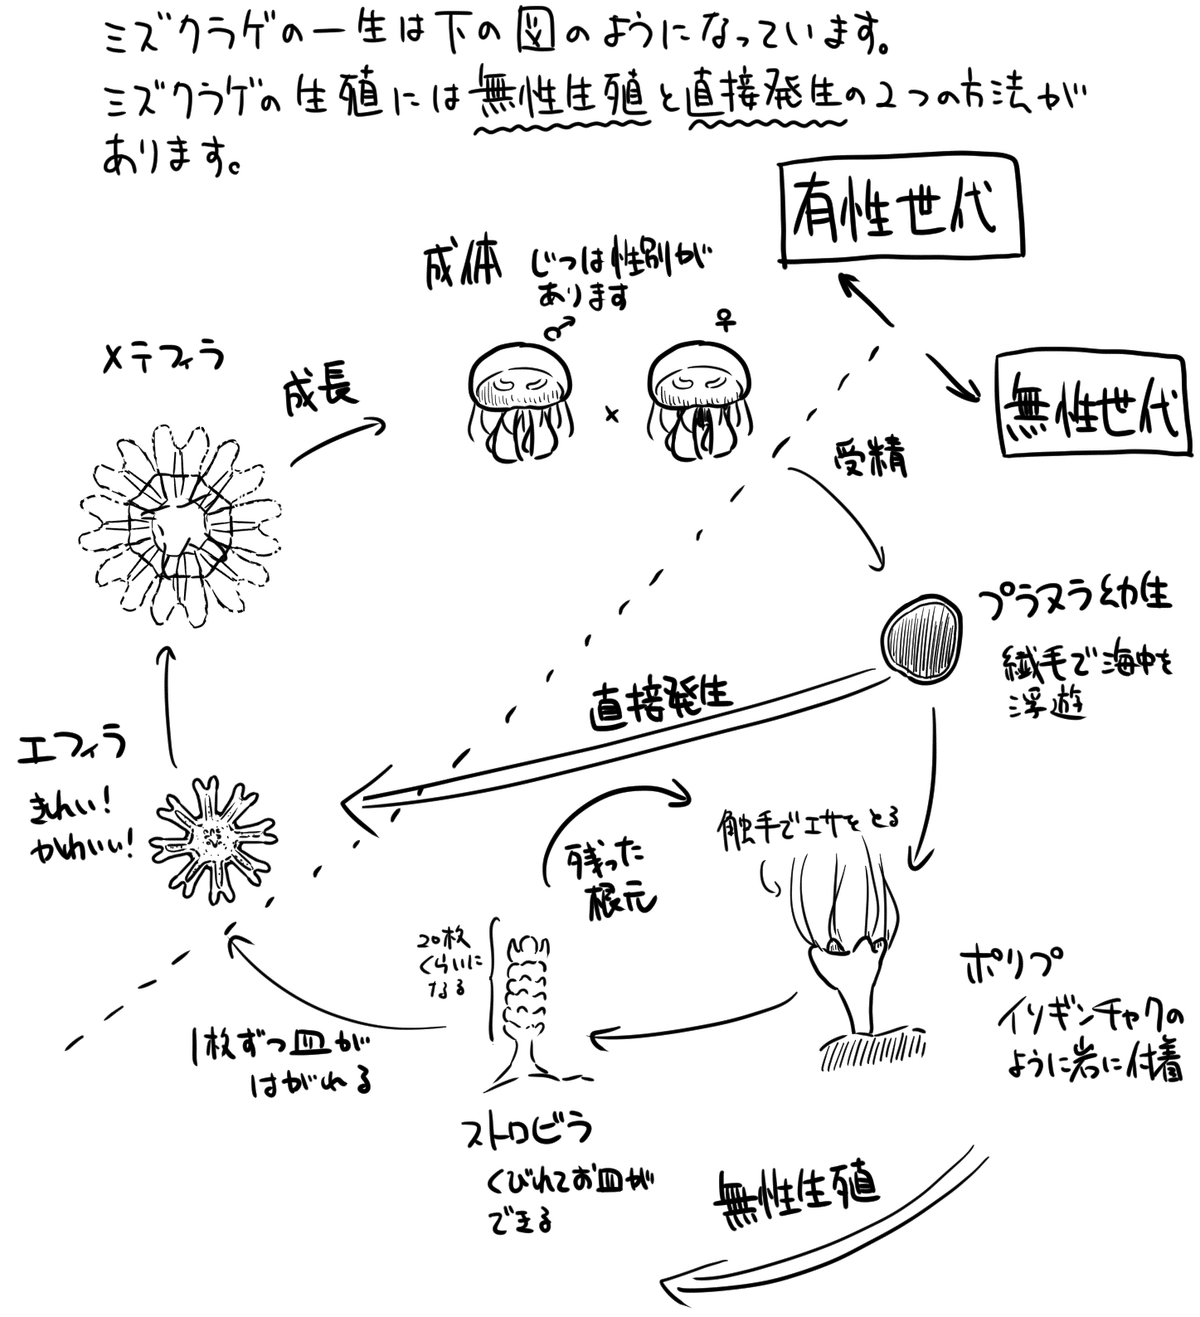 ミズクラゲの一生は下の図のようになっています。
ミズクラゲの生殖には無性生殖と直接発生の2つの方法が
あります。
有性世代
無性世代
成体
じつは性別が
あります
♂
♀
×
メテフィラ
成長
受精
プラヌラ幼生
繊毛で海中を
浮遊
直接発生
エフィラ
きれい!
かわいい!
残った
根元
触手でエサをとる
20枚
くらいに
なる
ポリプ
イソギンチャクの
ように岩に付着
1枚ずつ皿が
はがれる
ストロビラ
くびれてお皿が
できる
無性生殖